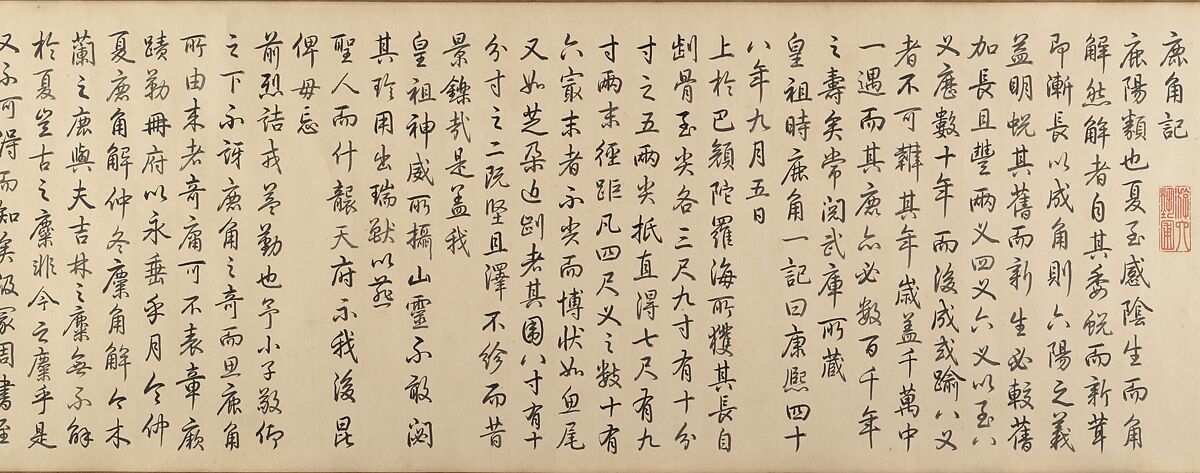 鹿角記
鹿陽類也夏至感陰生而角
解然解者自其委蛻而新茸
即漸長以成角則六陽之義
益明蛻其舊而新生必較舊
加長且豐兩义四义六义以至八
义應數十年而後成或踰八义
者不可覯其年歲蓋千萬中
一遇而其鹿亦必數百千年
之壽矣常閱武庫所藏
皇祖時鹿角一記曰康熙四十
八年九月五日
上於巴顏陀羅海所獲其長自
齗骨至尖各三尺九寸有十分
寸之五兩尖抵直得七尺有九
寸兩末徑距凡四尺义之數十有
六㝡末者不尖而博狀如魚尾
又如芝朵近齗者其圍八寸有十
分寸之二既堅且澤不紾而昔
景鑠哉是蓋我
皇祖神威所攝山靈不敢閟
其珍用出瑞獸以燕
聖人而什襲天府示我後昆
俾毋忘
前烈詰戎益勤也予小子敬仰
之下不訝鹿角之奇而思鹿角
所由来者奇庸可不表章厥
蹟勒冊府以永垂乎月令仲
夏鹿角解仲冬麋角解今木
蘭之鹿與夫吉林之麋無不解
於夏豈古之麋非今之麋乎是
又不可得而知矣汲冢周書至